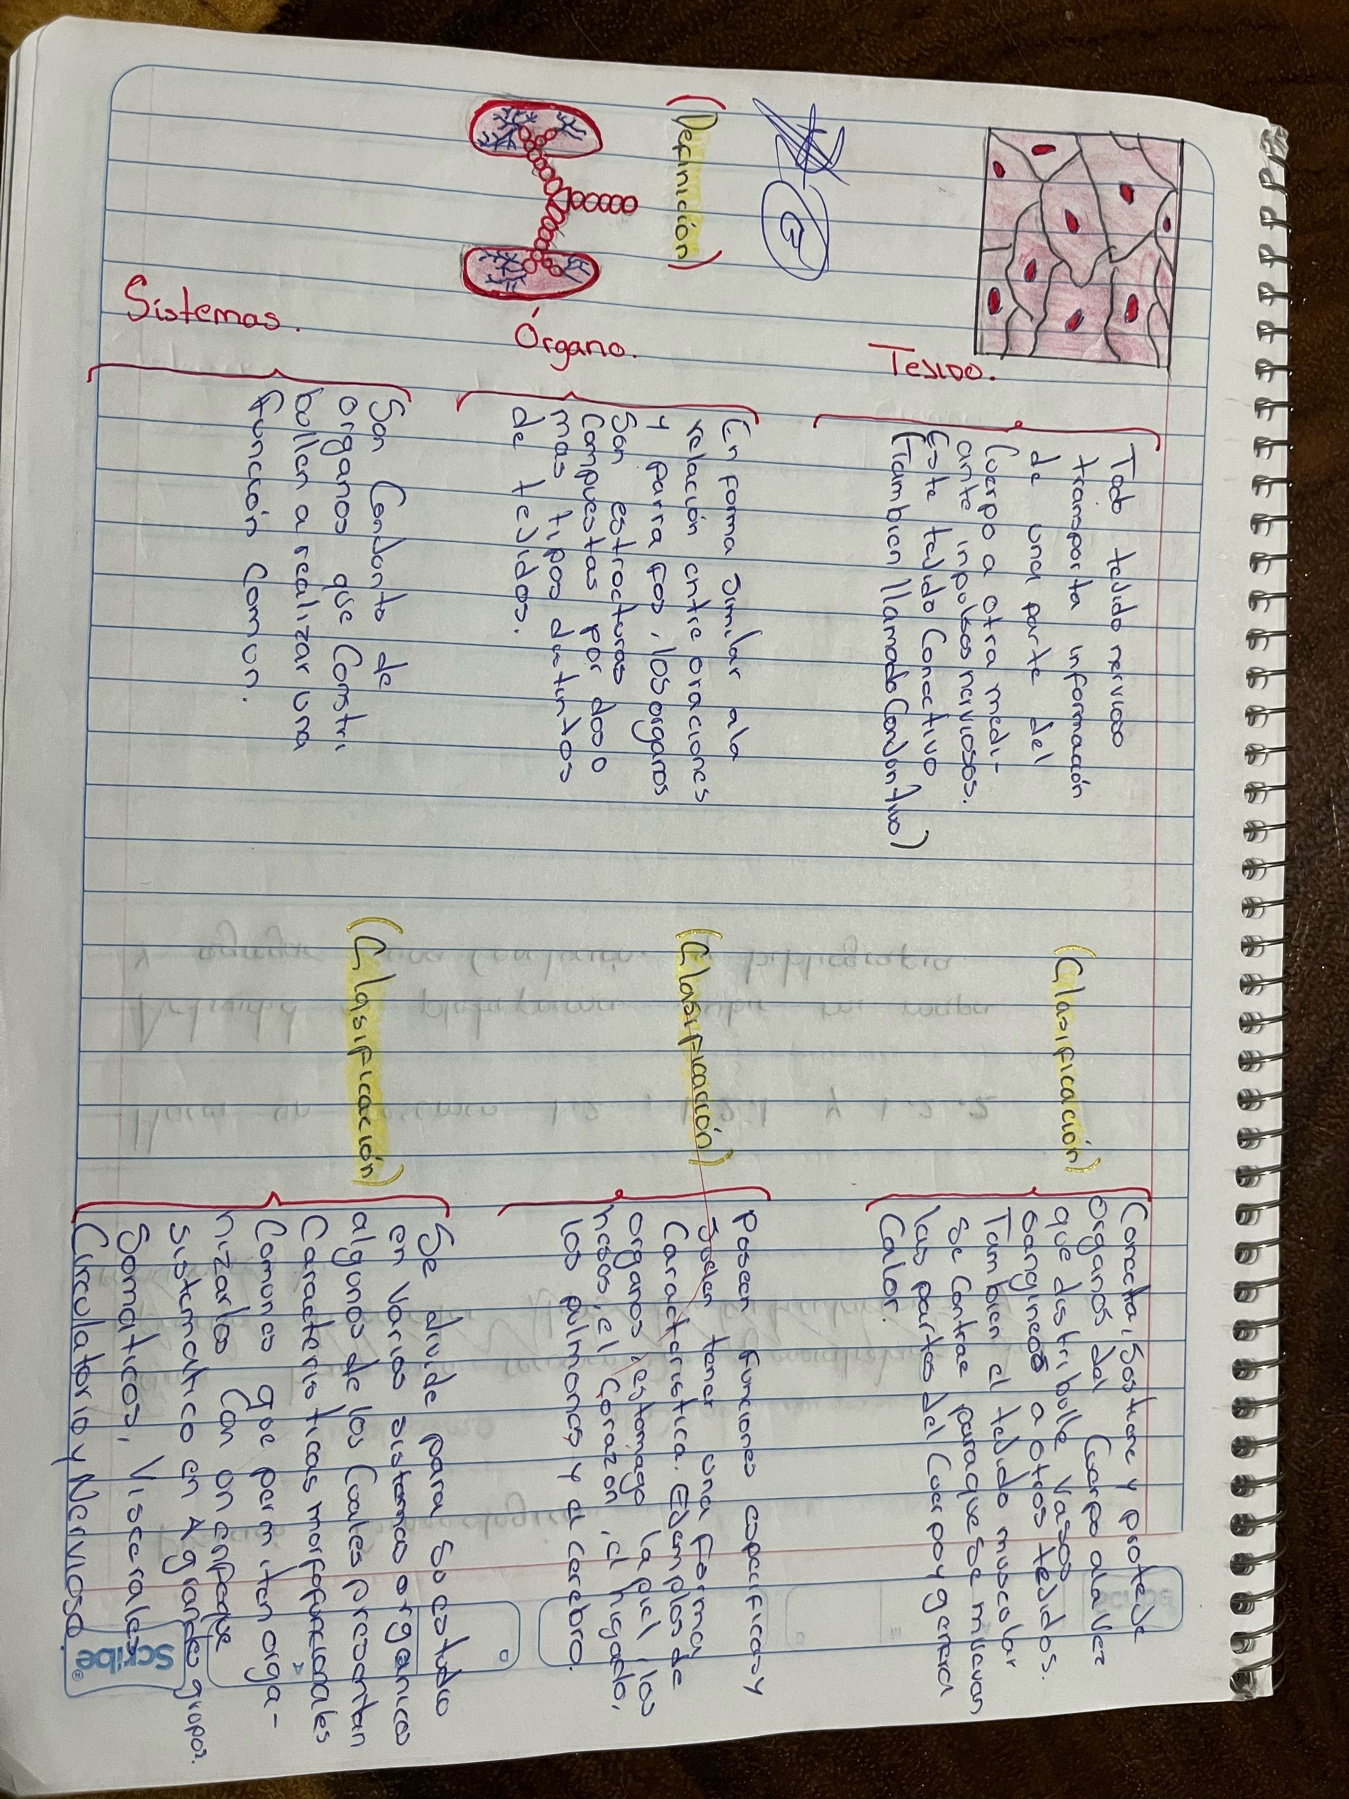 Tejido.
Todo tejido nervioso
transporta información
de una parte del
Cuerpo a otra medi-
ante inpulsos nerviosos.
Este tejido Conectivo
(Tambien llamado Conjuntivo)
(Clasificación)
Conecta, Sostiene y proteje
organos del Cuerpo ala vez
que distribulle vasos
sangineos a otros tejidos.
Tambien el tejido muscular
se Contrae paraque se muevan
las partes del Cuerpo y genera
Calor.
(Definición)
Órgano.
En forma similar ala
relación entre oraciones
y parrafos, los organos
Son estructuras
Compuestas por dos o
mas tipos distintos
de tejidos.
(Clasificación)
Poseen funciones especificas y
Suelen tener una forma
Caracteristica. Ejemplos de
organos, estomago la piel, los
hesos, el Corazón, el higado,
los pulmones y el cerebro.
Sistemas.
Son Conjunto de
organos que Constri
bullen a realizar una
función Comun.
(Clasificación)
Se divide para Su estudio
en varios sistemas organicos
algunos de los Cuales presentan
Caracteristicas morfofuncionales
Comunes que permiten orga-
nizarlos Con un enfoque
sistematico en A grandes grupos.
Somaticos, Viscerales
Circulatorio y Nervioso.
Scribe®